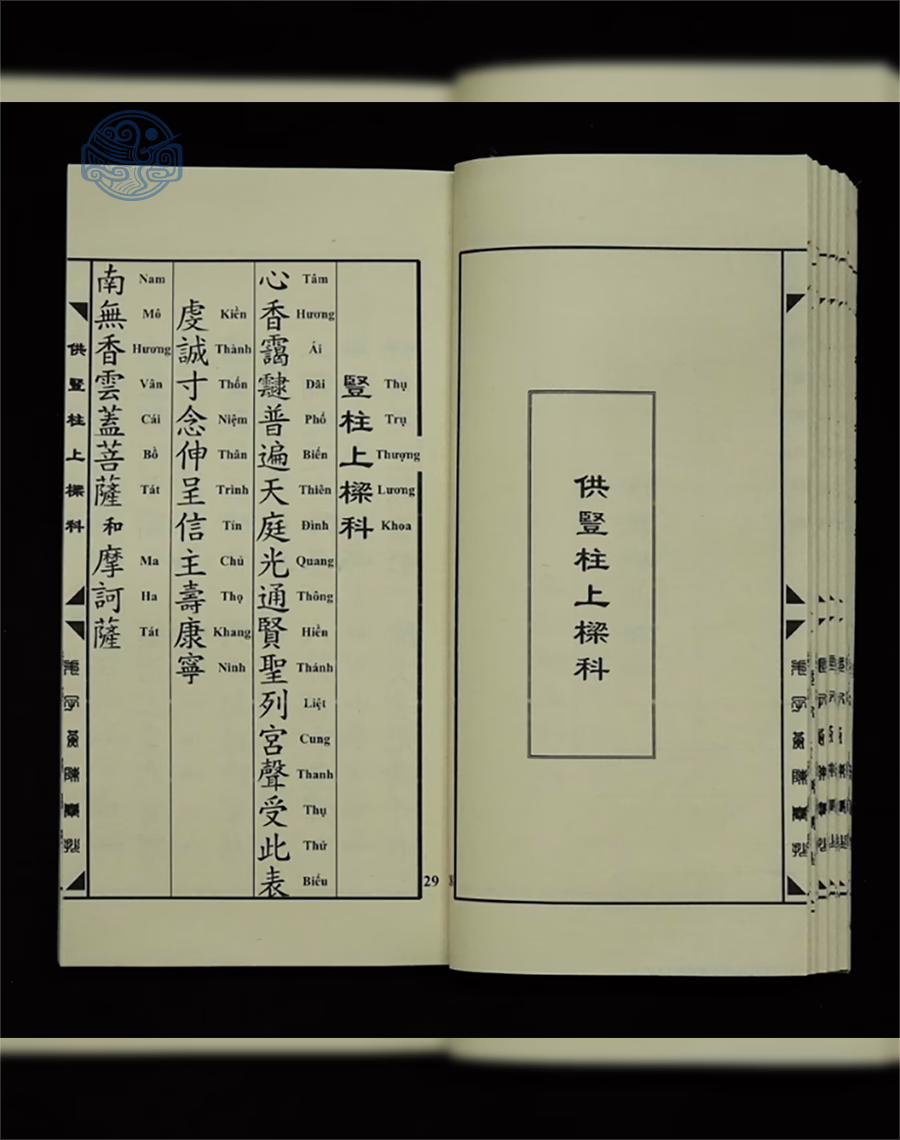 供豎柱上樑科
29
豎柱上樑科
Thụ Trụ Thượng Lương Khoa
心香靄靆普遍天庭光通賢聖列宮聲受此表
Tâm Hương Ái Đãi Phổ Biến Thiên Đình Quang Thông Hiền Thánh Liệt Cung Thanh Thụ Thử Biểu
虔誠寸念伸呈信主壽康寧
Kiền Thành Thốn Niệm Thân Trình Tín Chủ Thọ Khang Ninh
南無香雲蓋菩薩和摩訶薩
Nam Mô Hương Vân Cái Bồ Tát Ma Ha Tát
供豎柱上樑科